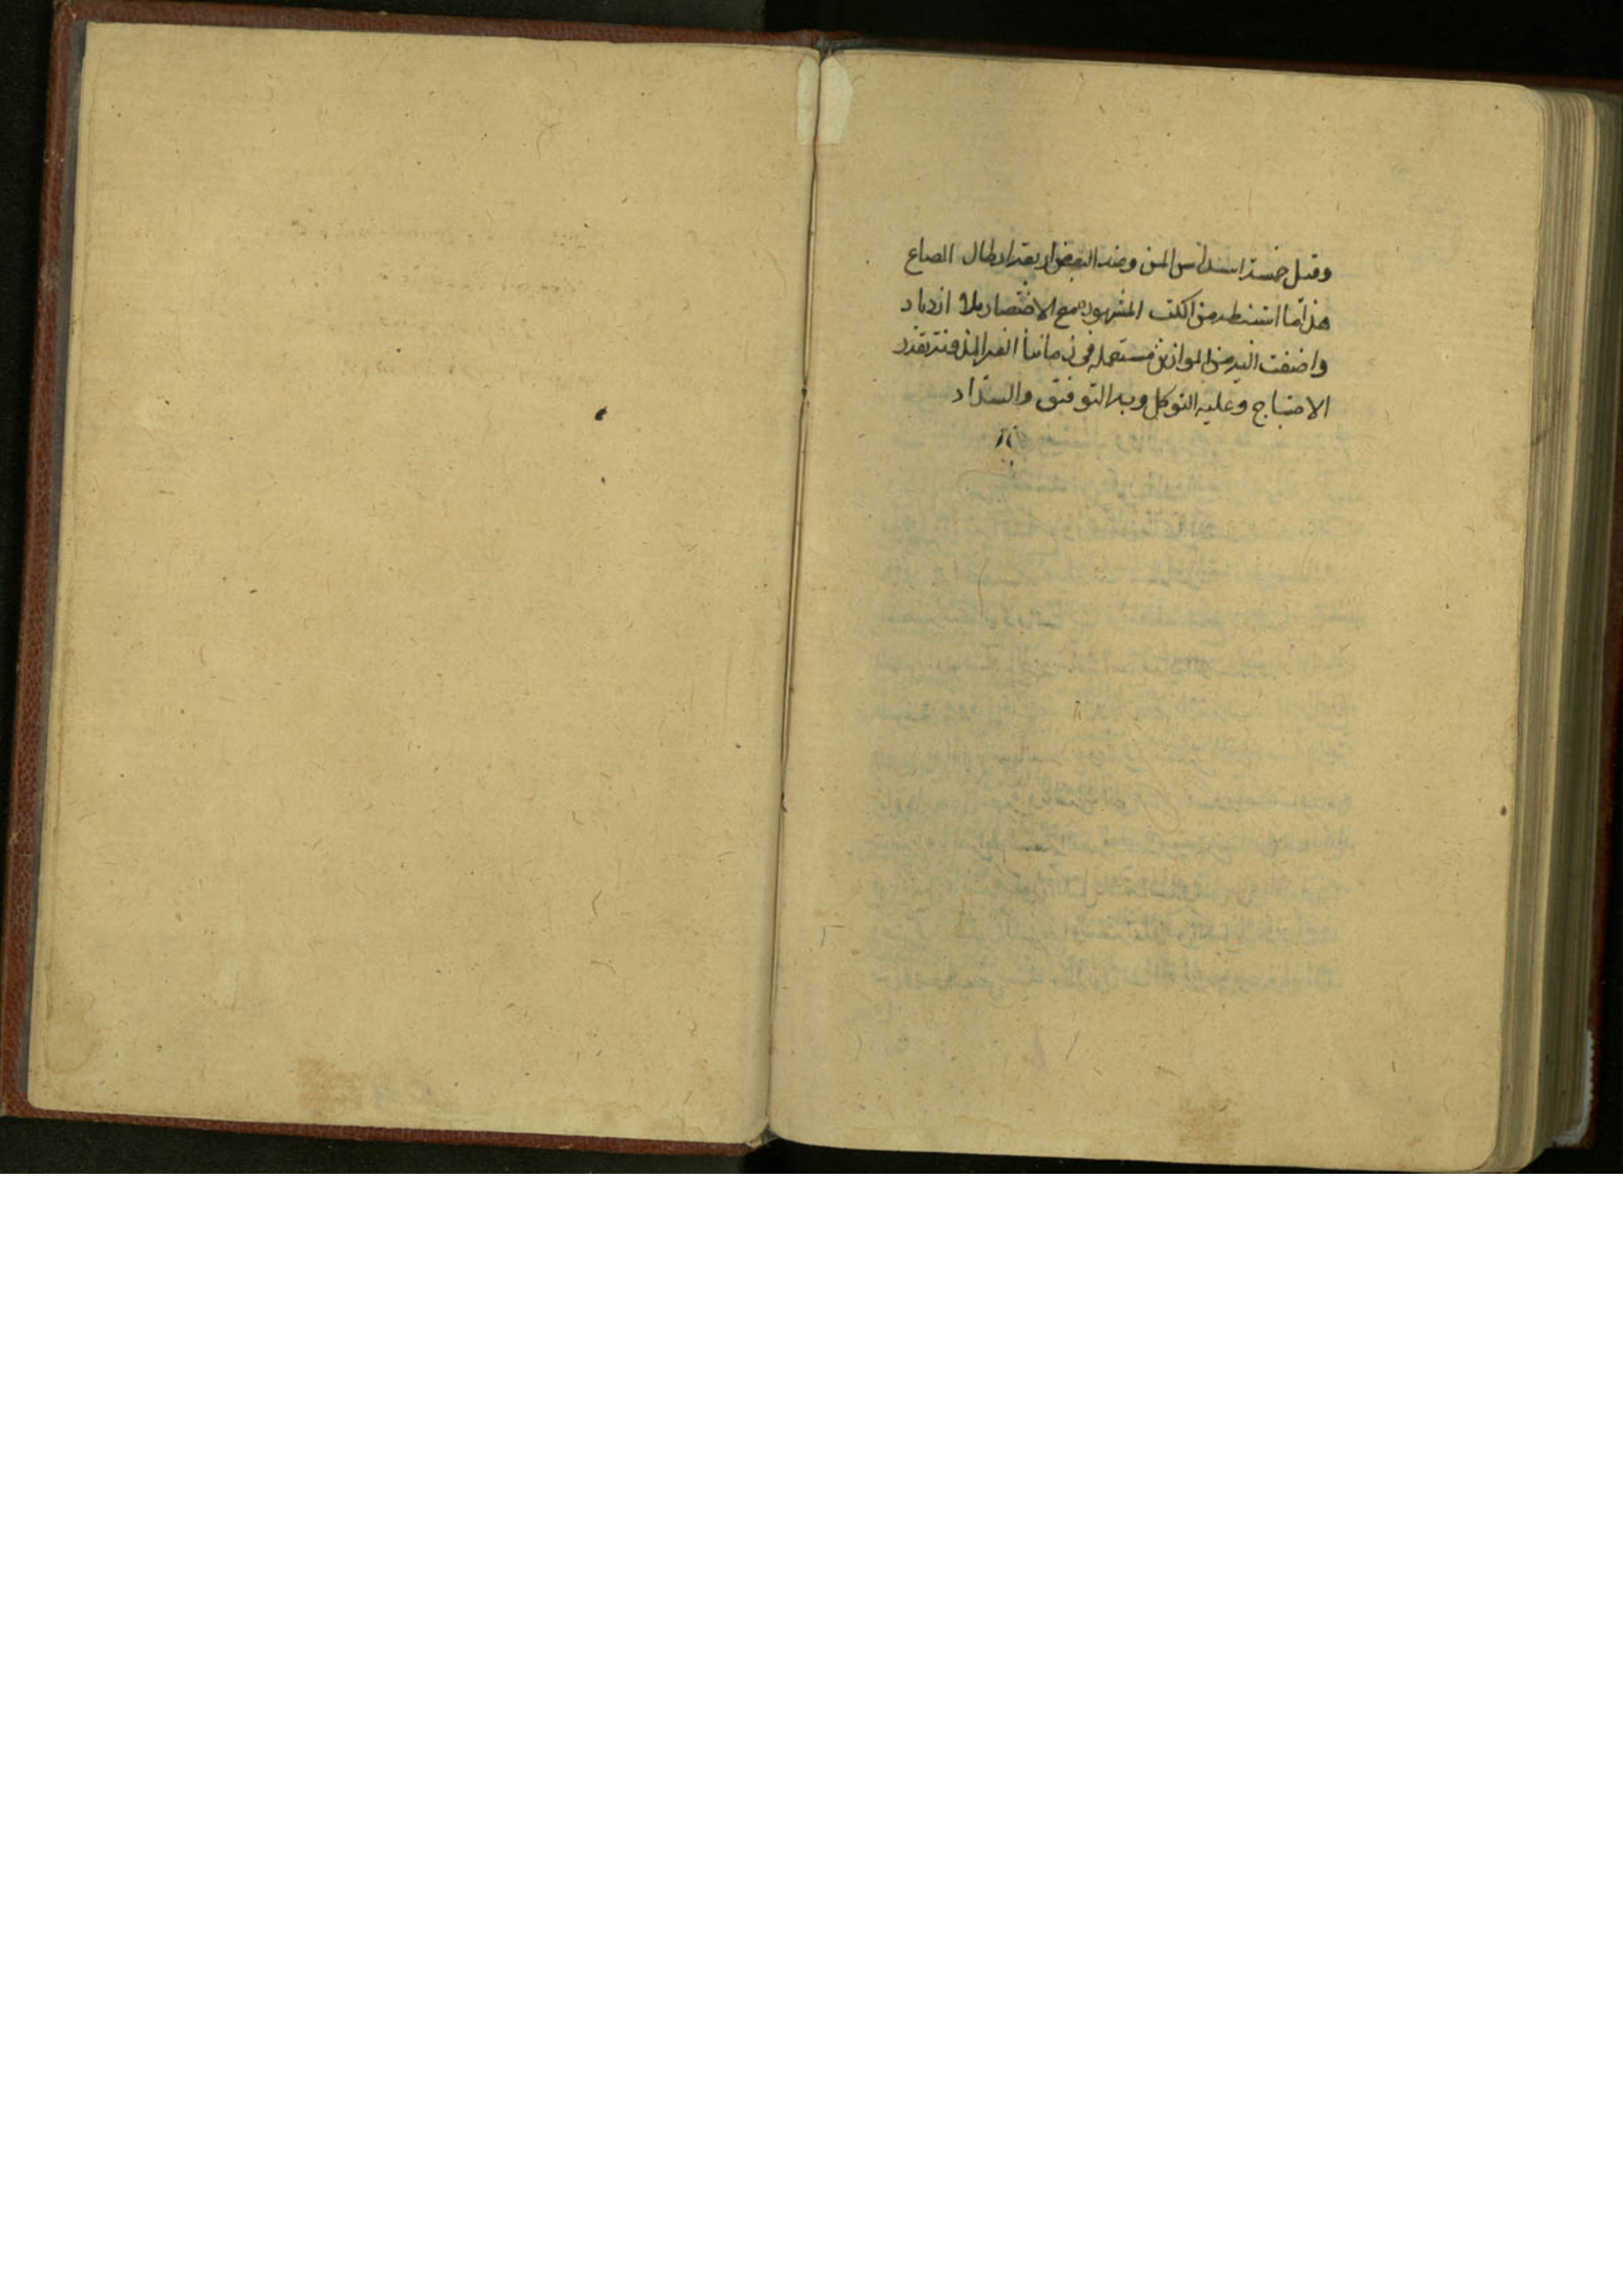 وقيل خمسة اسداس المن وعند البعض اربعة ارطال الصاع
هذا ما استنبطه من الكتب المشهوره مع الاختصار بلا ازدياد
واضفت اليه من الموازين مستعمله فى زماننا الغير المدونة بقدر
الاحتياج وعليه التوكل وبه التوفيق والسداد